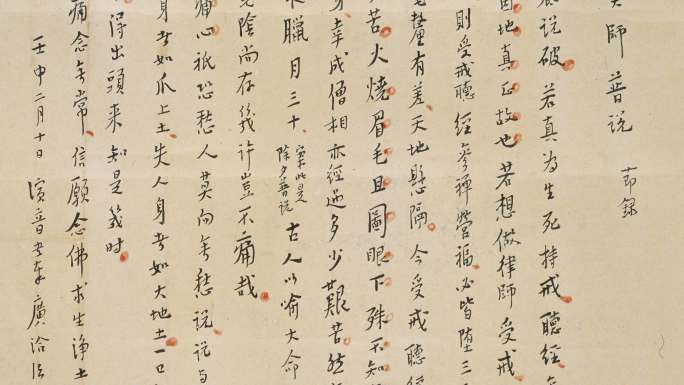 大師普說 節錄
說破若真為生死持戒聽經
因地真正故也若想做律師受戒
則受戒聽經參禪營福必皆墮三
毫釐有差天地懸隔今受戒聽經
苦火燒眉毛且圖眼下殊不知
身幸成僧相亦經過多少艱苦然
臘月三十 案此是除夕普說 古人以喻大命
光陰尚存幾許豈不痛哉
痛心祇恐愁人莫向無愁說說與
身者如爪上土失人身者如大地土一口
得出頭來知是幾時
痛念無常信願念佛求生淨土
壬申二月十日演音書奉廣洽法